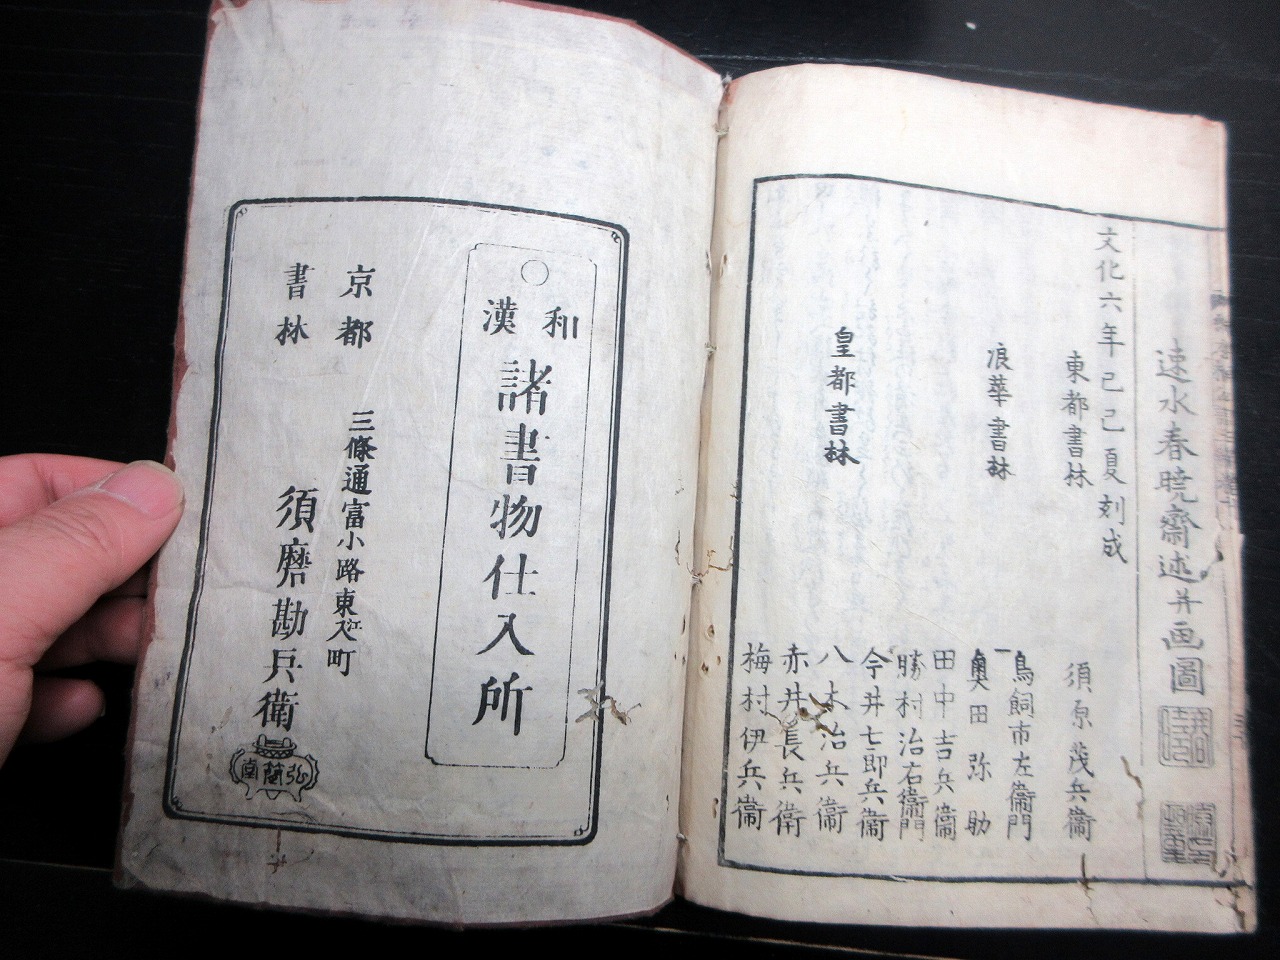 速水春暁齋述并画圖
文化六年己巳夏刻成
東都書林
須原茂兵衞
浪華書林
鳥飼市左衞門
奥田弥助
田中吉兵衞
勝村治右衞門
皇都書林
今井七郎兵衞
八木治兵衞
赤井長兵衞
梅村伊兵衞
〇
和漢
諸書物仕入所
京都
書林
三條通富小路東江入町
須磨勘兵衛
弘簡堂